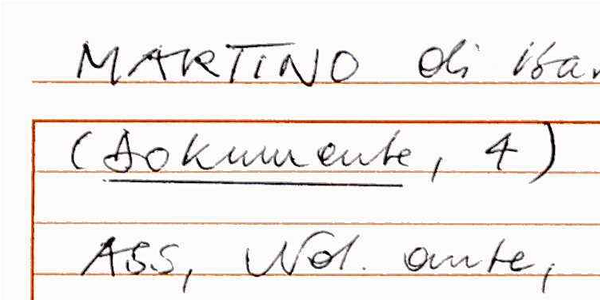 MARTINO di Bar
(Dokumente, 4)
ASS, Not. ante,